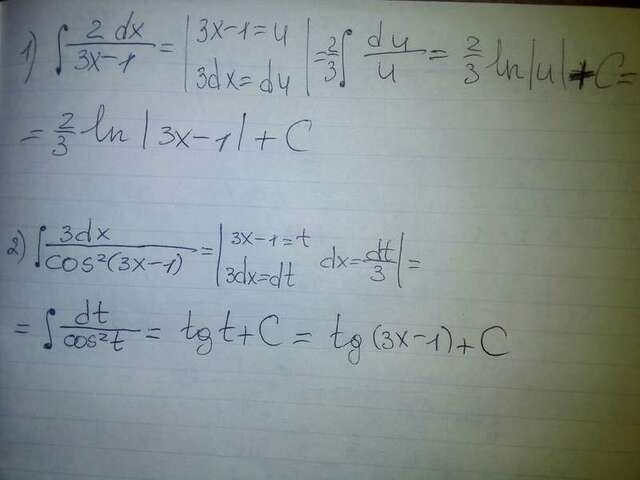 1) ∫ 2 dx / 3x-1 = | 3x-1=u 3dx=du | = 2/3 ∫ du / u = 2/3 ln|u| + C =
= 2/3 ln |3x-1| + C
2) ∫ 3dx / cos²(3x-1) = | 3x-1=t 3dx=dt dx= dt/3 | =
= ∫ dt / cos²t = tg t + C = tg (3x-1) + C